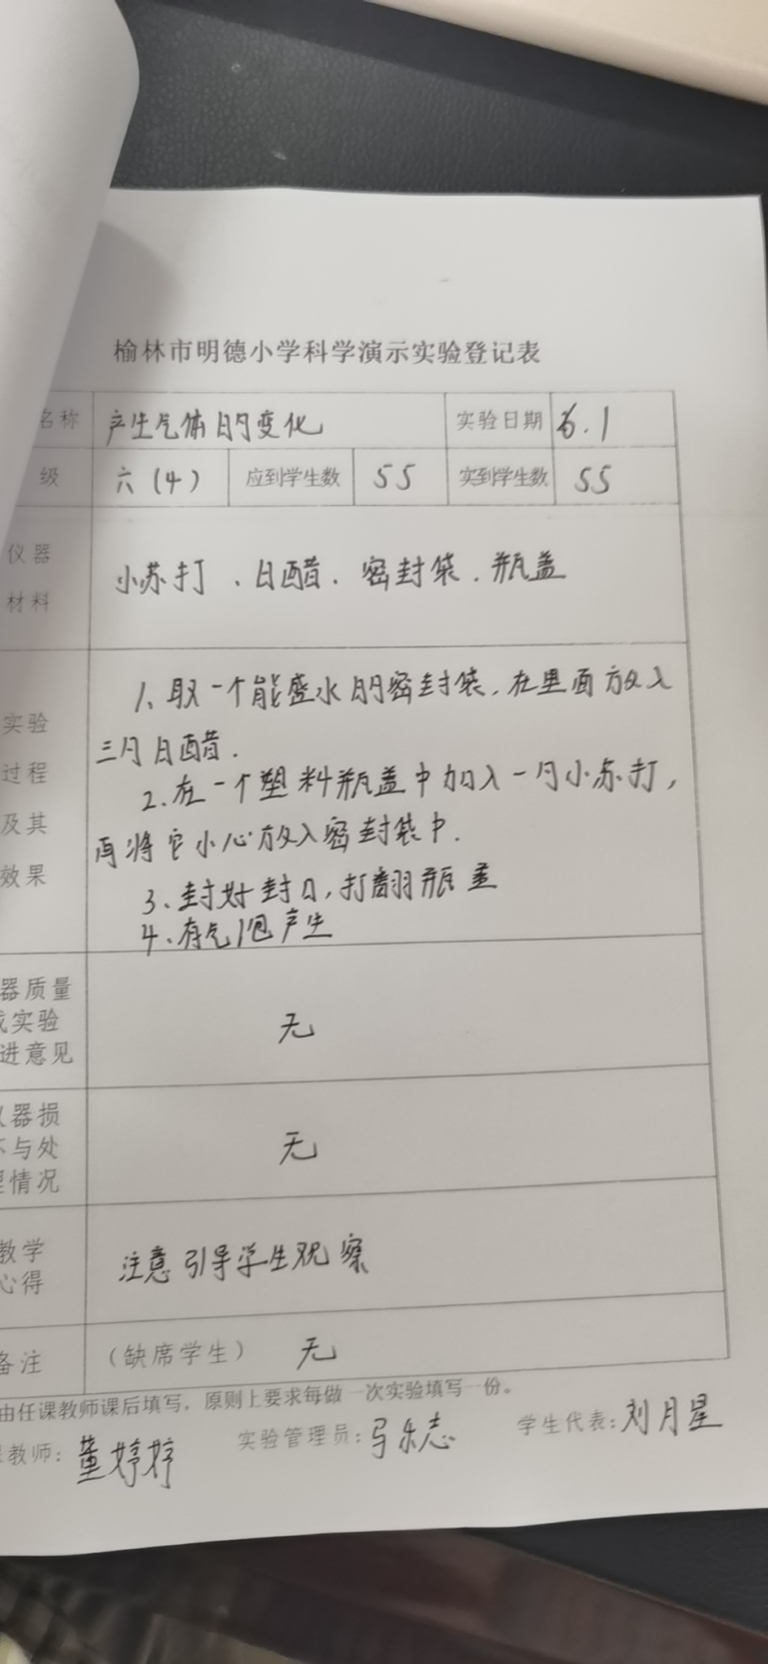 榆林市明德小学科学演示实验登记表
名称 产生气体的变化 实验日期 6.1
级 六(4) 应到学生数 55 实到学生数 55
仪器
材料
小苏打、白醋、密封袋、瓶盖
实验
过程
及其
效果
1、取一个能盛水的密封袋,在里面放入
三勺白醋.
2.在一个塑料瓶盖中加入一勺小苏打,
再将它小心放入密封袋中.
3、封好封口,打翻瓶盖
4、有气泡产生
器质量
实验
进意见
无
器损
与处
情况
无
教学
心得
注意引导学生观察
备注 (缺席学生) 无
由任课教师课后填写,原则上要求每做一次实验填写一份。
教师: 董婷婷 实验管理员: 马乐志 学生代表: 刘月星